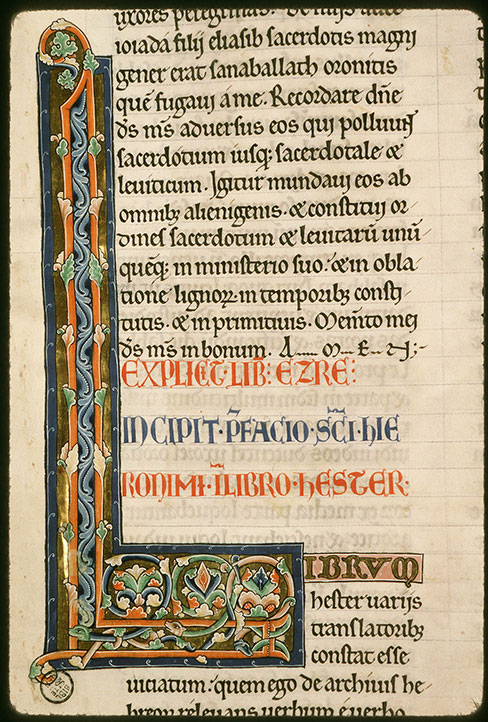 uxores peregrinas. De filijs aute
ioiada filij eliasib sacerdotis magni
gener erat sanaballath oronitis
quē fugaui a me. Recordare dn̄e
ds̄ ms̄ aduersus eos qui polluunt
sacerdotium iusq; sacerdotale &
leuiticum. Igitur mundaui eos ab
omnibꝫ alienigenis. & constitui or
dines sacerdotum & leuitarū unū
quēq; in ministerio suo. & in obla
tione lignoꝝ in temporibꝫ consti
tutis. & in primitiuis. Mem̄to mei
ds̄ ms̄ in bonum. A.... M... E... N;-
EXPLICIT·LIB̄·EZRE:
INCIPIT·P̄FACIO·SC̄I·HIE
RONIMI·ĪLIBRO·HESTER·
LIBRVM
hester uarijs
translatoribꝫ
constat esse
uiciatum. quem ego de archiuis he
breoꝝ releuans uerbum e uerbo